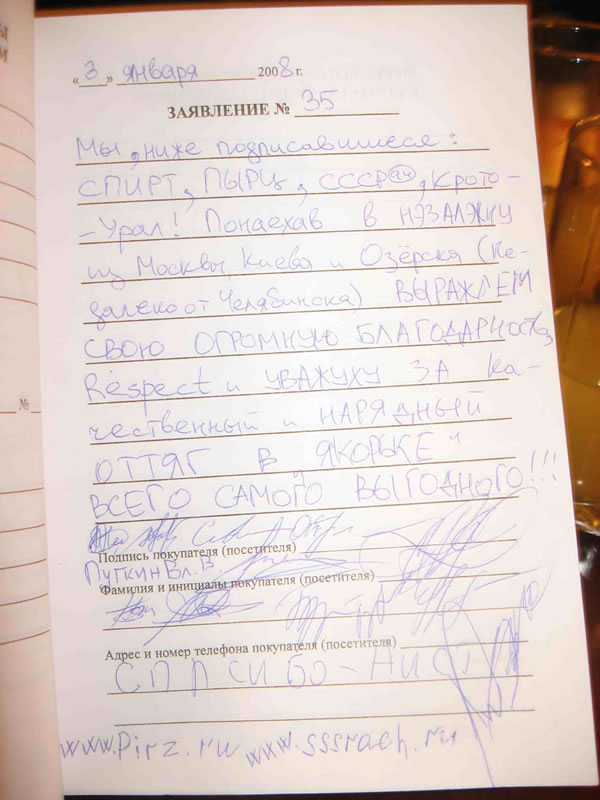 « 3 » января 2008 г.
ЗАЯВЛЕНИЕ № 35
Мы, ниже подписавшиеся:
СПИРТ, ПЫРЦ, СССР@ч, Крото-
-Урал! Понаехав в НЭЗАЛЖНУ
из Москвы, Киева и Озёрска (не-
далеко от Челябинска) ВЫРАЖАЕМ
СВОЮ ОГРОМНУЮ БЛАГОДАРНОСТЬ,
Respect и УВАЖУХУ ЗА ка-
чественный и НАРЯДНЫЙ
ОТТЯГ В „ЯКОРЬКЕ"
ВСЕГО САМОГО ВЫГОДНОГО!!!
Подпись покупателя (посетителя)
Путкин Вл. В.
Фамилия и инициалы покупателя (посетителя)
Адрес и номер телефона покупателя (посетителя)
СПАСИБО -
www.pirz.ru www.sssrach.ru
№